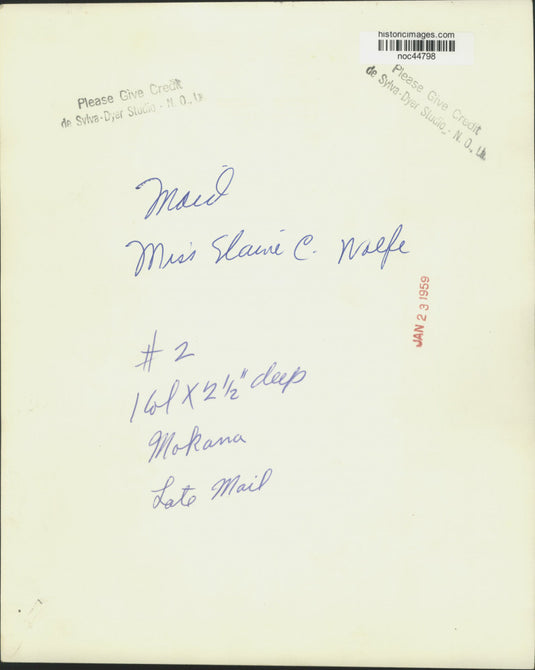 historicimages.com
noc44798
Please Give Credit
de Sylva-Dyer Studio - N. O., La.
Please Give Credit
de Sylva-Dyer Studio - N. O., La.
Maid
Miss Elaine C. Wolfe
JAN 23 1959
#2
1 Col X 2 1/2" deep
Mokana
Late Mail